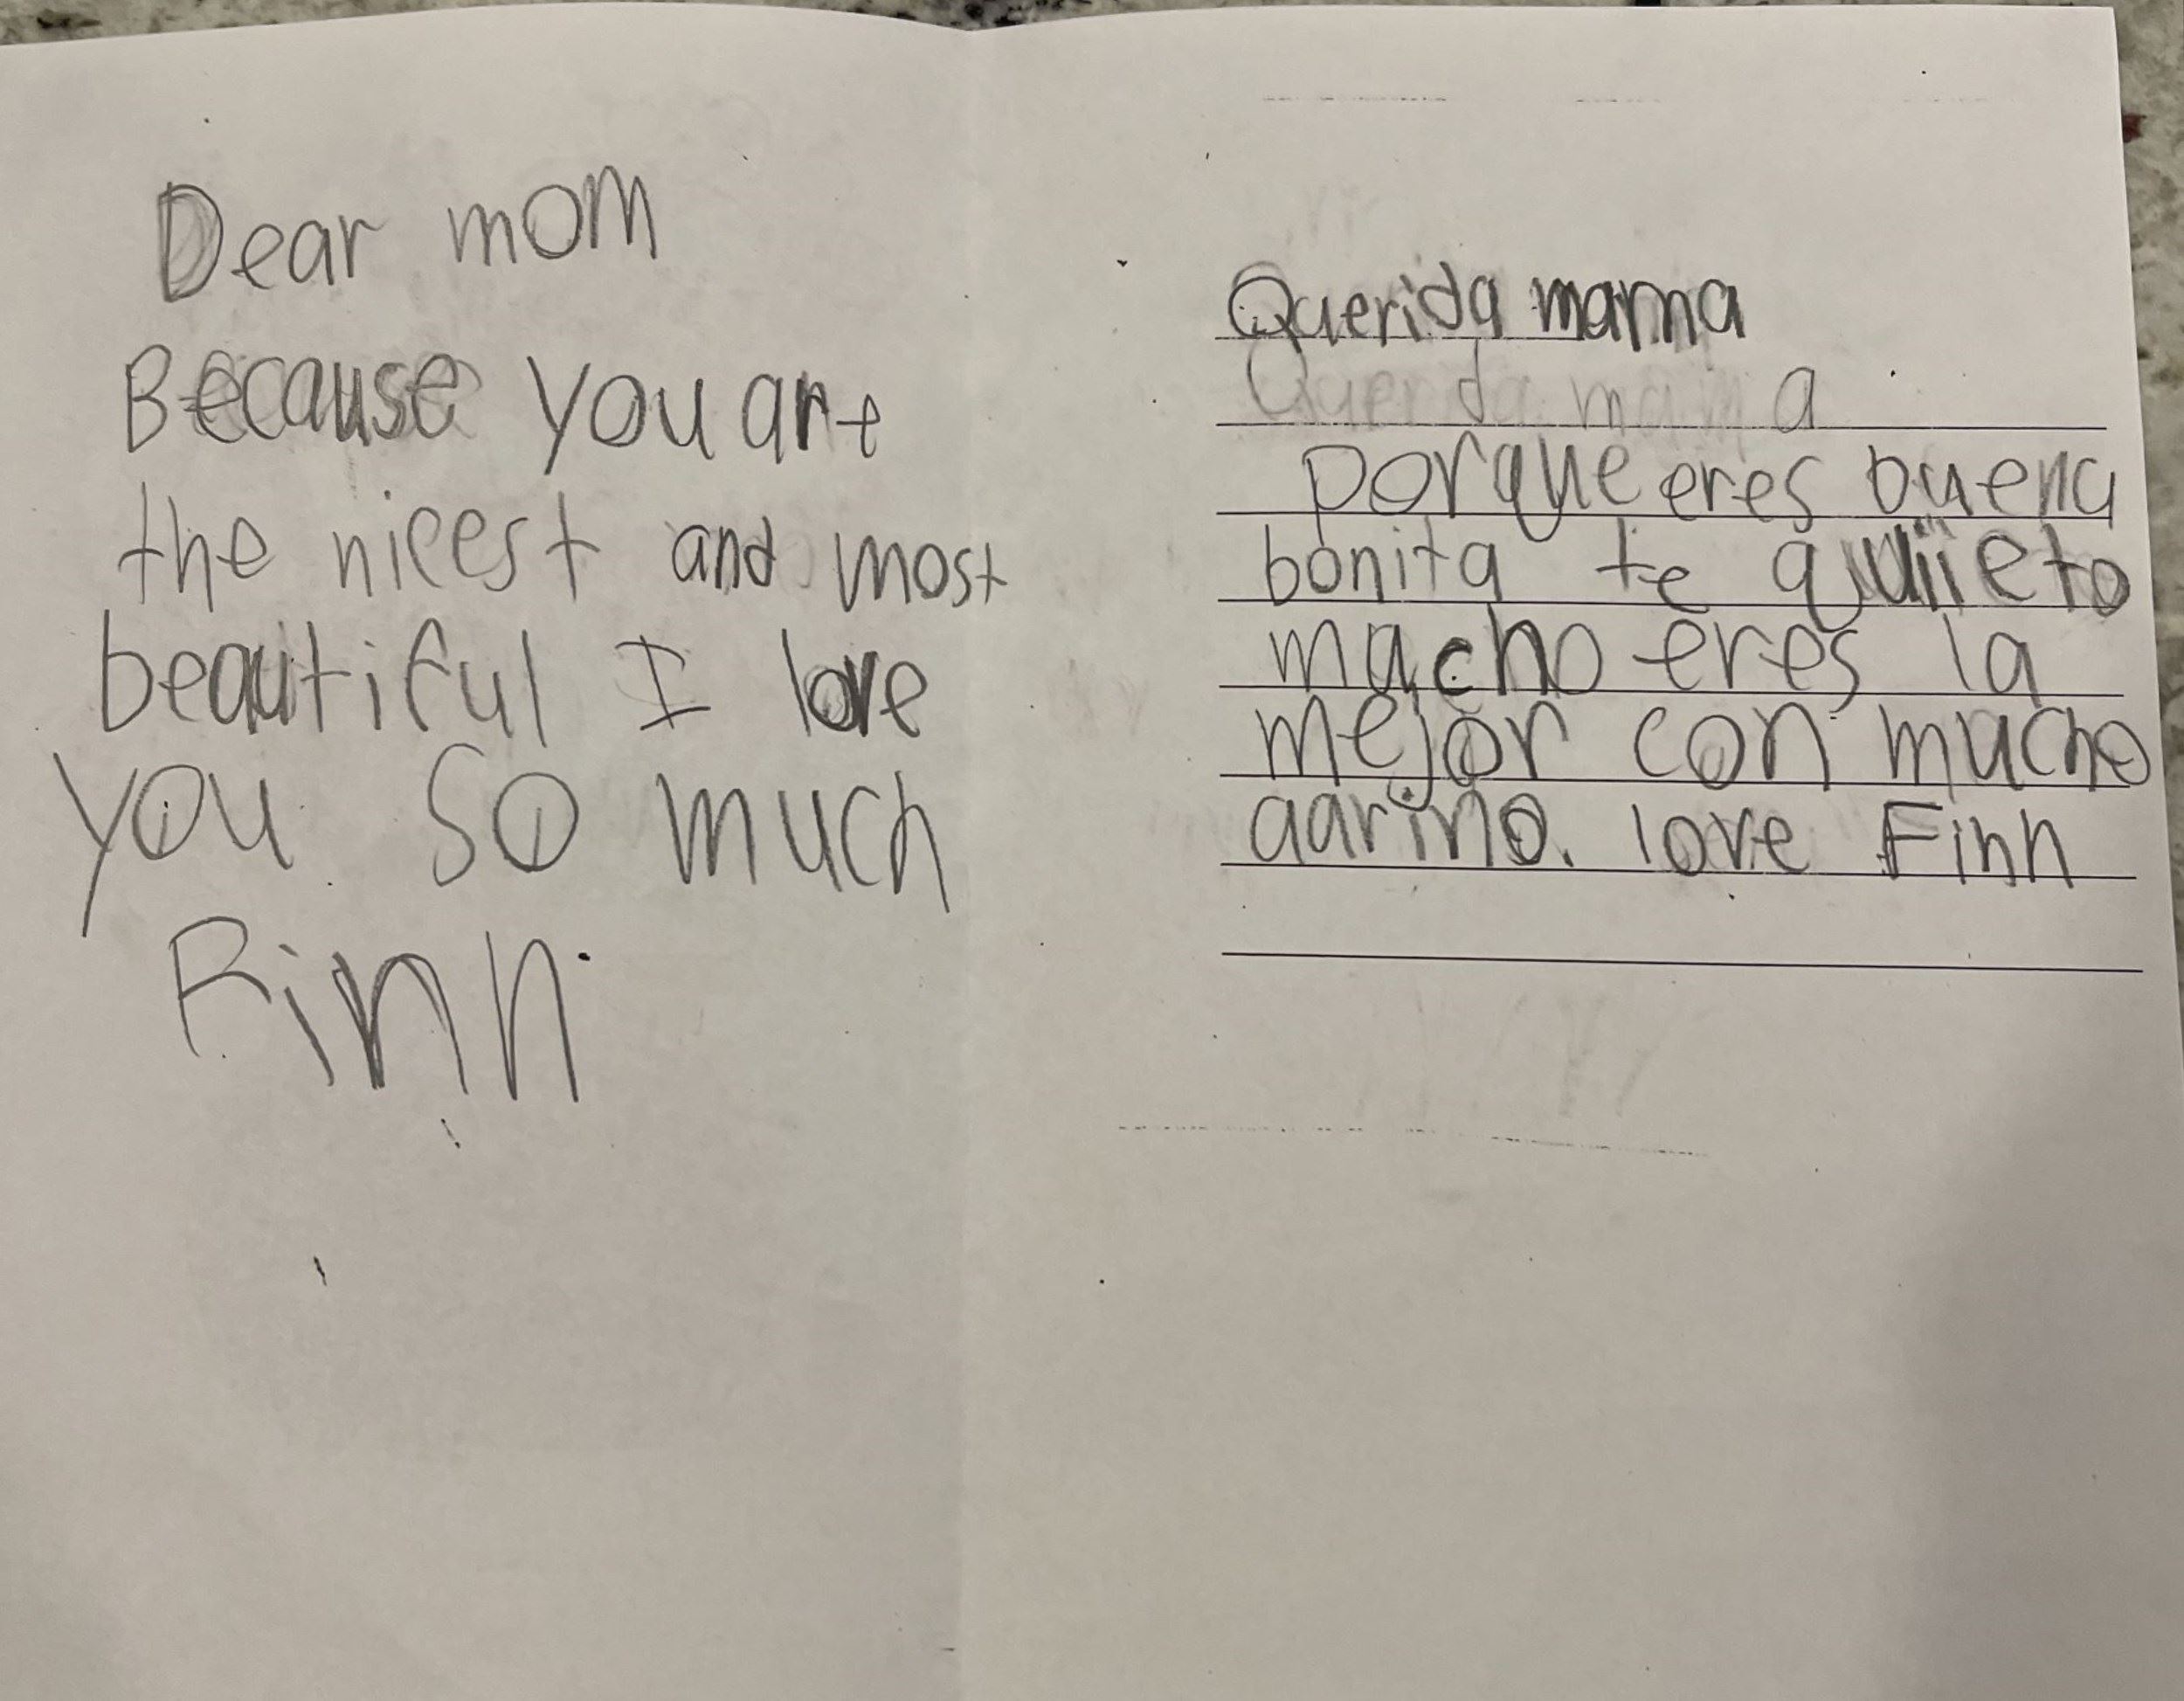 Dear mom
Because you are
the nicest and most
beautiful I love
you so much
Finn
Querida mama
Querida mama
porque eres buena
bonita te quiieto
mucho eres la
mejor con mucho
aariño. love Finn